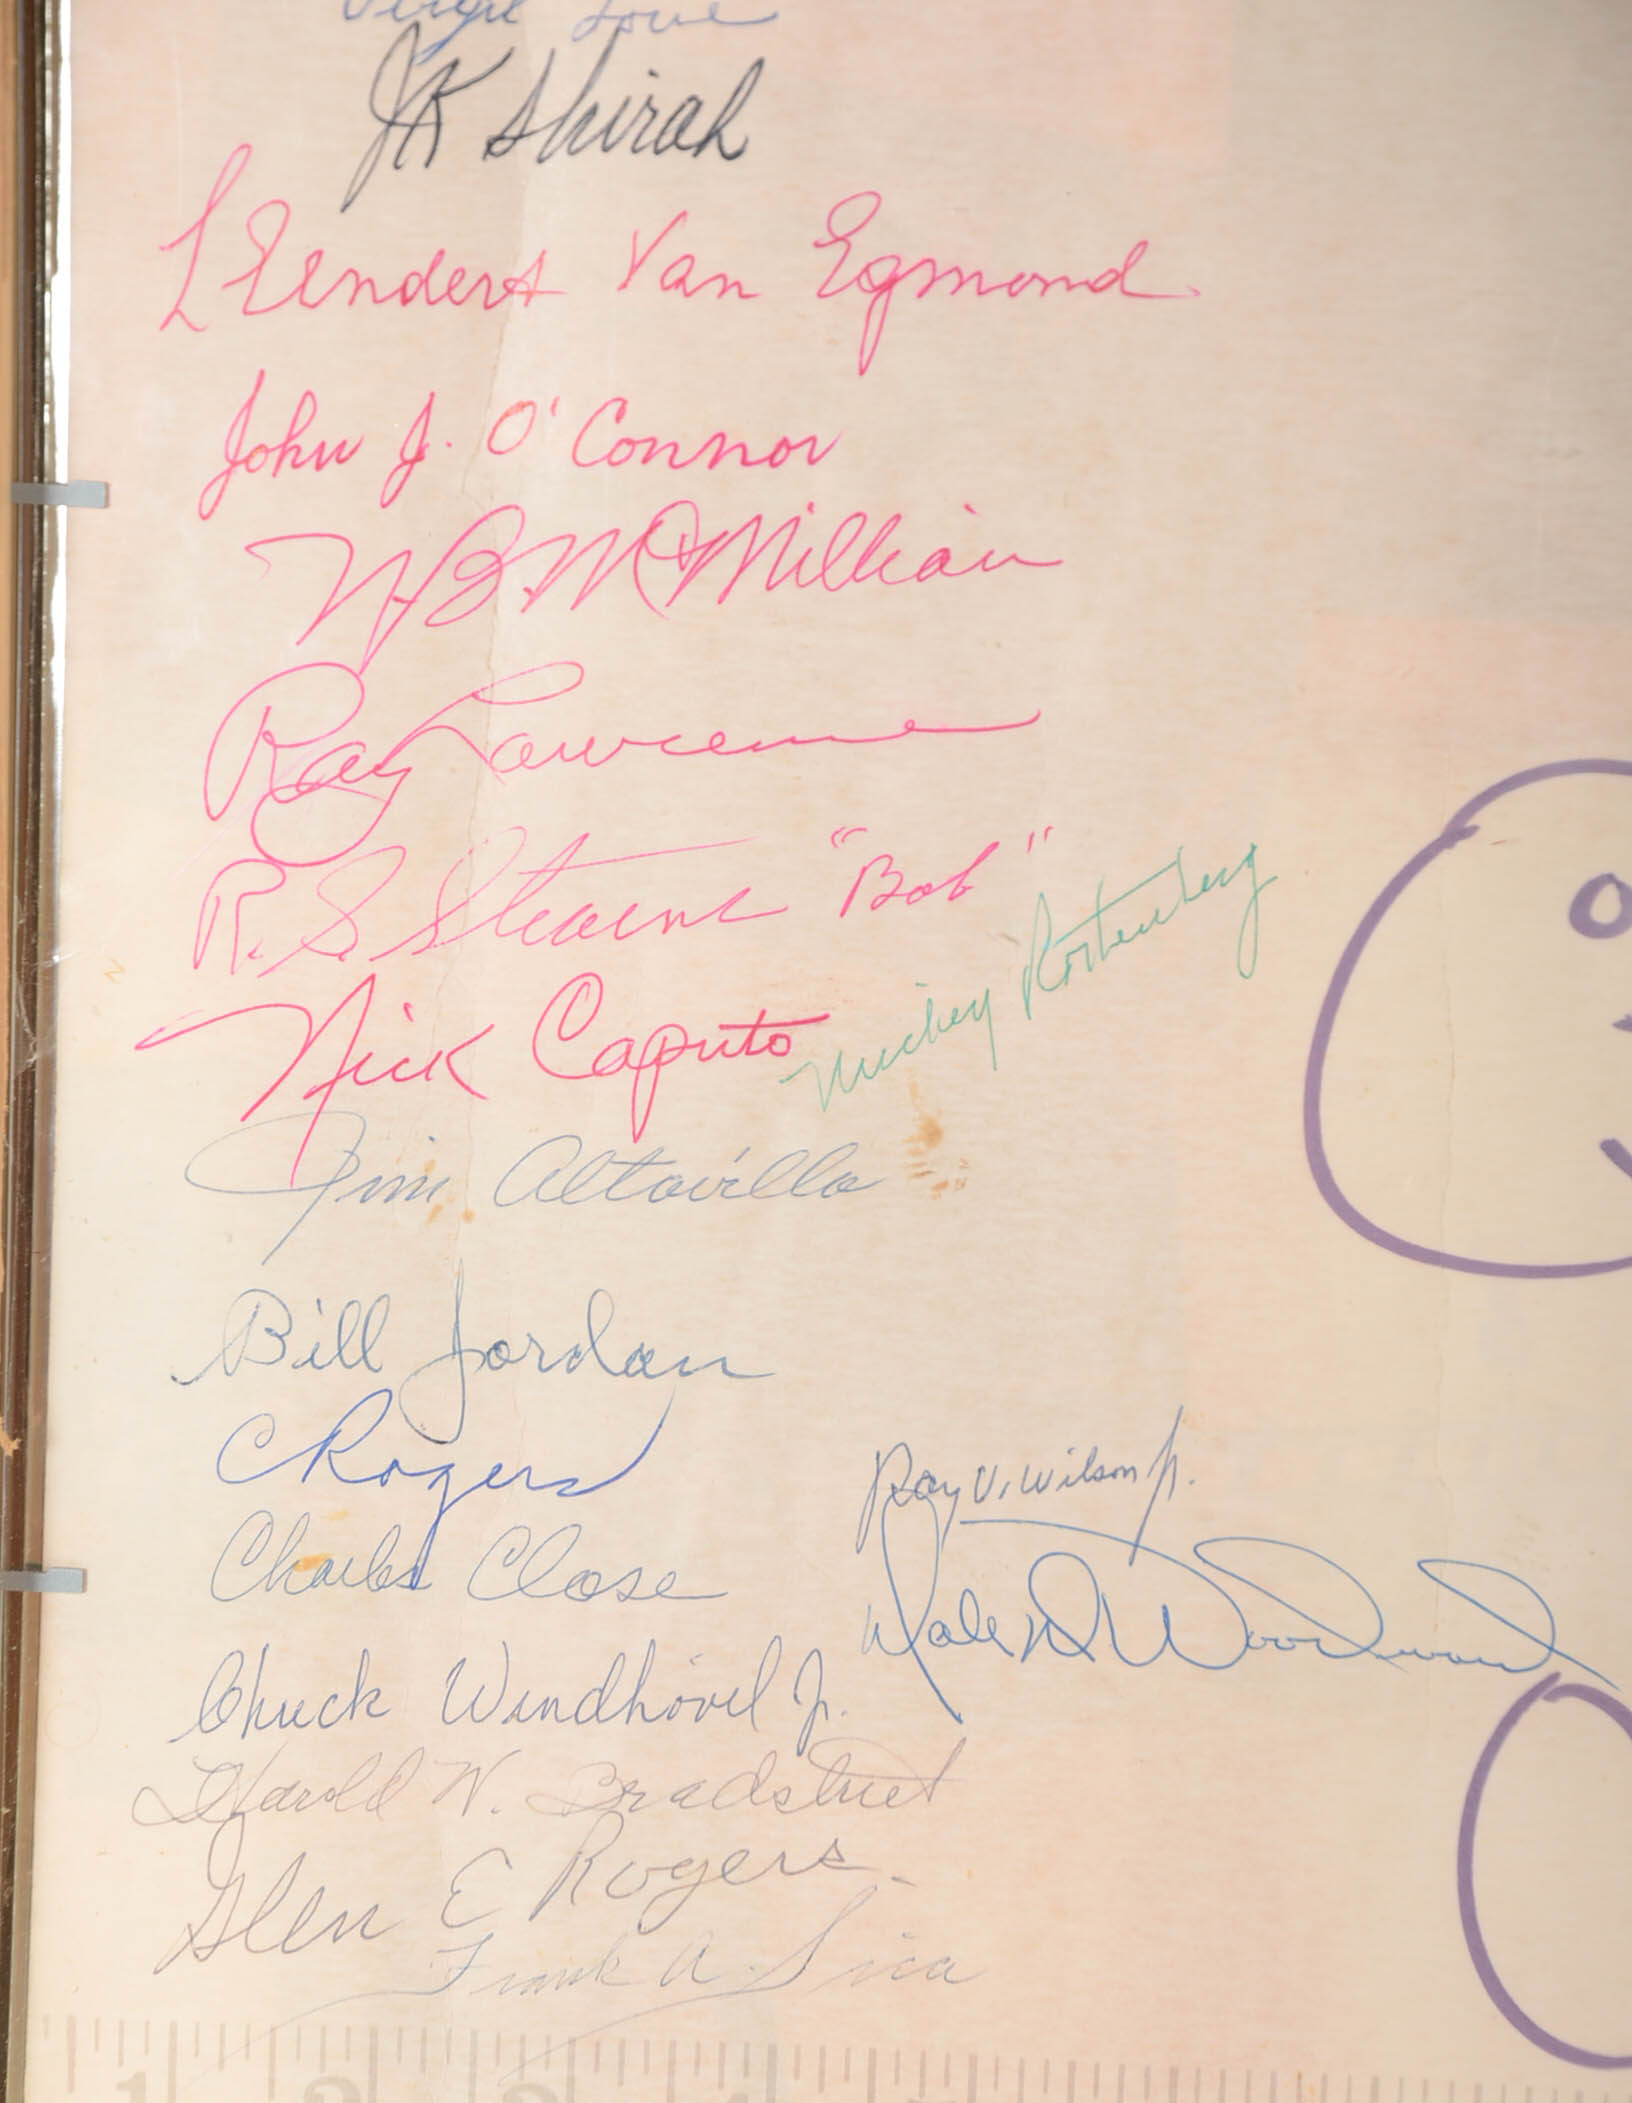 Virgil Love
JK Shirah
LEendert Van Egmond
John J. O'Connor
N.B. McMillian
Ray Lawrence
R. S. Stearns "Bob"
Mickey Rortenberg
Nick Caputo
Jim Altovilla
Bill Jordan
C Rogers
Ray V. Wilson Jr.
Charles Close
Dale W Woodward
Chuck Windhövel Jr.
Harold W. Bradstreet
Glen E Rogers
Frank A. Sica
1 2 3 4